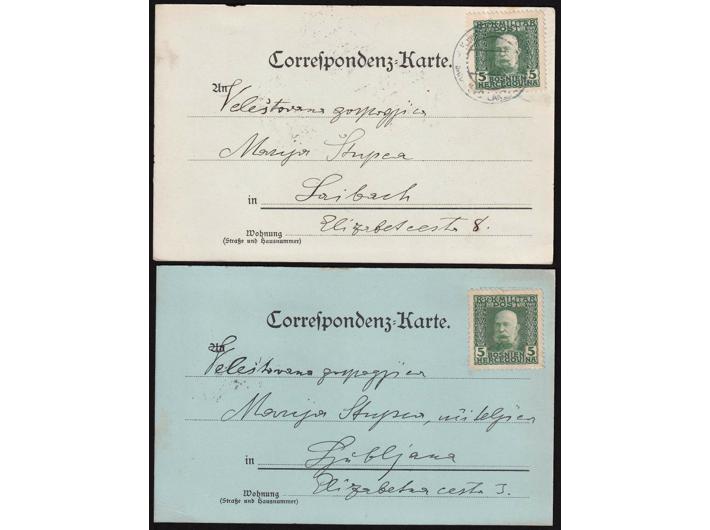 K.u.K. MILITÄR
POST
5 5
BOSNIEN
HERCEGOVINA
Correspondenz-Karte.
An
Veleštovana gospogjica
Marija Stupca
in Laibach
Wohnung
(Straße und Hausnummer)
Elizabet cesta 8.
K.u.K. MILITÄR
POST
5 5
BOSNIEN
HERCEGOVINA
Correspondenz-Karte.
An
Veleštovana gospogjica
Marija Stupca, učiteljica
in Ljubljana
Wohnung
(Straße und Hausnummer)
Elizabetna cesta 3.